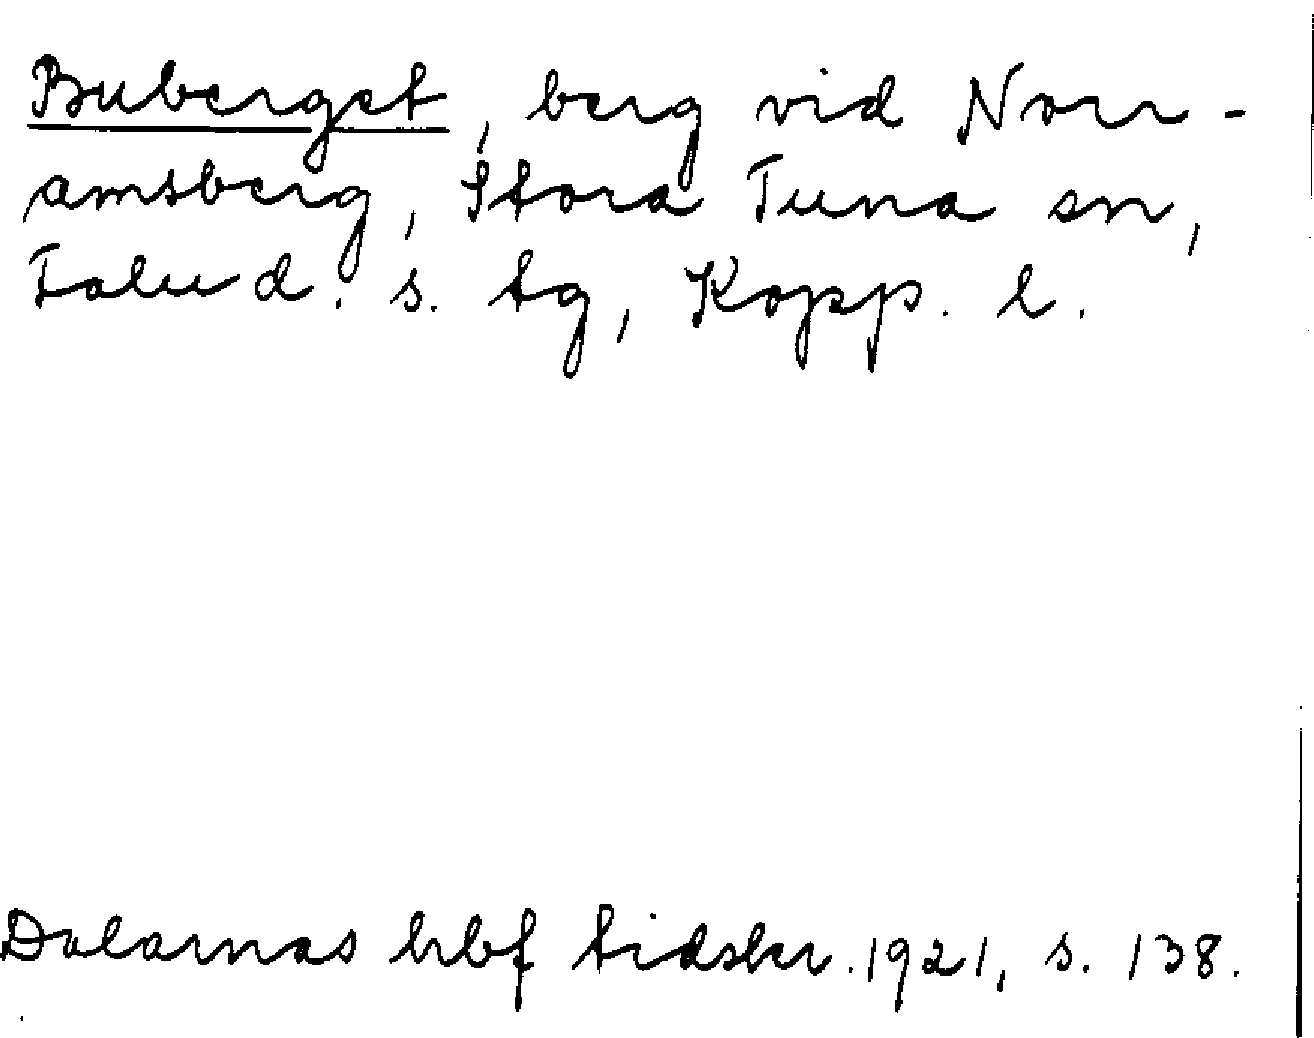 Buberget, berg vid Norr-
amsberg, Stora Tuna sn,
Falu d. s. tg, Kopp. l.
Dalarnas hbf tidskr. 1921, s. 138.